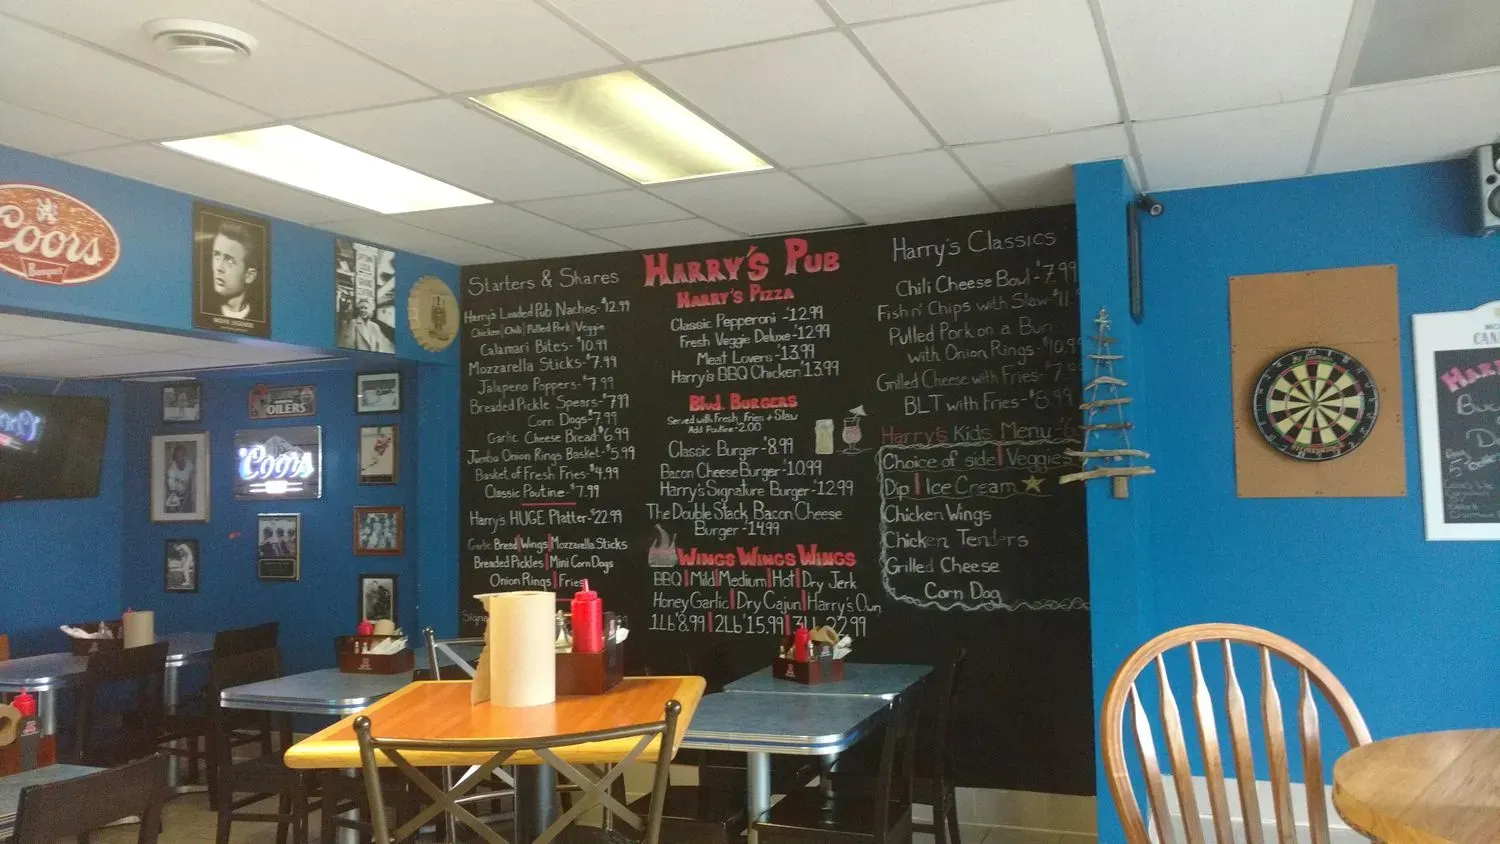 Coors
Banquet
OILERS
Coors
Starters & Shares
Harry's Loaded Pub Nachos-$12.99
Chicken|Chili|Pulled Pork|Veggie
Calamari Bites-$10.99
Mozzarella Sticks-$7.99
Jalapeno Poppers-$7.99
Breaded Pickle Spears-$7.99
Corn Dogs-$7.99
Garlic Cheese Bread-$6.99
Jumbo Onion Rings Basket-$5.99
Basket of Fresh Fries-$4.99
Classic Poutine-$7.99
Harry's HUGE Platter-$22.99
Garlic Bread|Wings|Mozzarella Sticks
Breaded Pickles|Mini Corn Dogs
Onion Rings|Fries
HARRY'S PUB
HARRY'S PIZZA
Classic Pepperoni-$12.99
Fresh Veggie Deluxe-$12.99
Meat Lovers-$13.99
Harry's BBQ Chicken-$13.99
Blvd. BURGERS
Served with Fresh Fries + Slaw
Add Poutine-2.00
Classic Burger-$8.99
Bacon Cheese Burger-$10.99
Harry's Signature Burger-$12.99
The Double Stack Bacon Cheese
Burger-14.99
WINGS WINGS WINGS
BBQ|Mild|Medium|Hot|Dry Jerk
Honey Garlic|Dry Cajun|Harry's Own
1Lb $8.99|2Lb $15.99|3Lb 22.99
Harry's Classics
Chili Cheese Bowl-$7.99
Fish n' Chips with Slaw-$11.
Pulled Pork on a Bun
with Onion Rings-$10.99
Grilled Cheese with Fries-$7
BLT with Fries-$8.99
Harry's Kids Menu-$6
Choice of side|Veggies
Dip|Ice Cream
Chicken Wings
Chicken Tenders
Grilled Cheese
Corn Dog